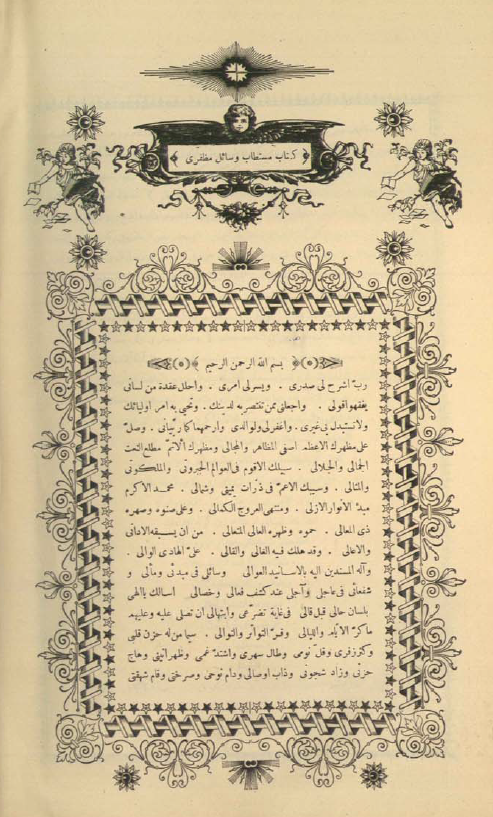 کتاب مستطاب وسائل مظفری
بسم الله الرحمن الرحیم
رب اشرح لی صدری . ویسرلی امری . واحلل عقدة من لسانی
یفقهوا قولی . واجعلنی ممن تنتصر به لدینك . وتحیی به امر اولیائك
ولاتستبدل بی غیری . واغفرلی ولوالدی وارحمهما کما ربیانی . وصل
علی مظهرك الاعظم اسنی المظاهر والمجالی ومظهرك الاتم مطلع النعت
الجمالی والجلالی . سبیلك الاقوم فی العوالم الجبروتی والملکوتی
والمثالی . وسیبك الاعم فی ذرات یمینی وشمالی . محمد الاکرم
مبدأ الانوار الازلی . ومنتهی العروج الکمالی . وعلی صنوه وصهره
ذی المعالی . حموه وظهره العالی المتعالی . من ان یسبقه الادانی
والاعالی . وقد هلك فیه الغالی والقالی . علی الهادی الوالی .
وآله المسندین الیه بالاسانید العوالی وسائلی فی مبدئی ومآلی و
شفعائی فی عاجلی وآجلی عند کشف فعالی وخصالی اسالك یاالهی
بلسان حالی قبل قالی فی غایة تضرعی وابتهالی ان تصلی علیه وعلیهم
ماکر الایام واللیالی وقر التواتر والتوالی . سیما من له حزن قلبی
وکثر زفری وقل نومی وطال سهری واشتد غمی وظهر انینی وهاج
حزنی وزاد شجونی وذاب اوصالی ودام نوحی وصرختی وقام شهقتی